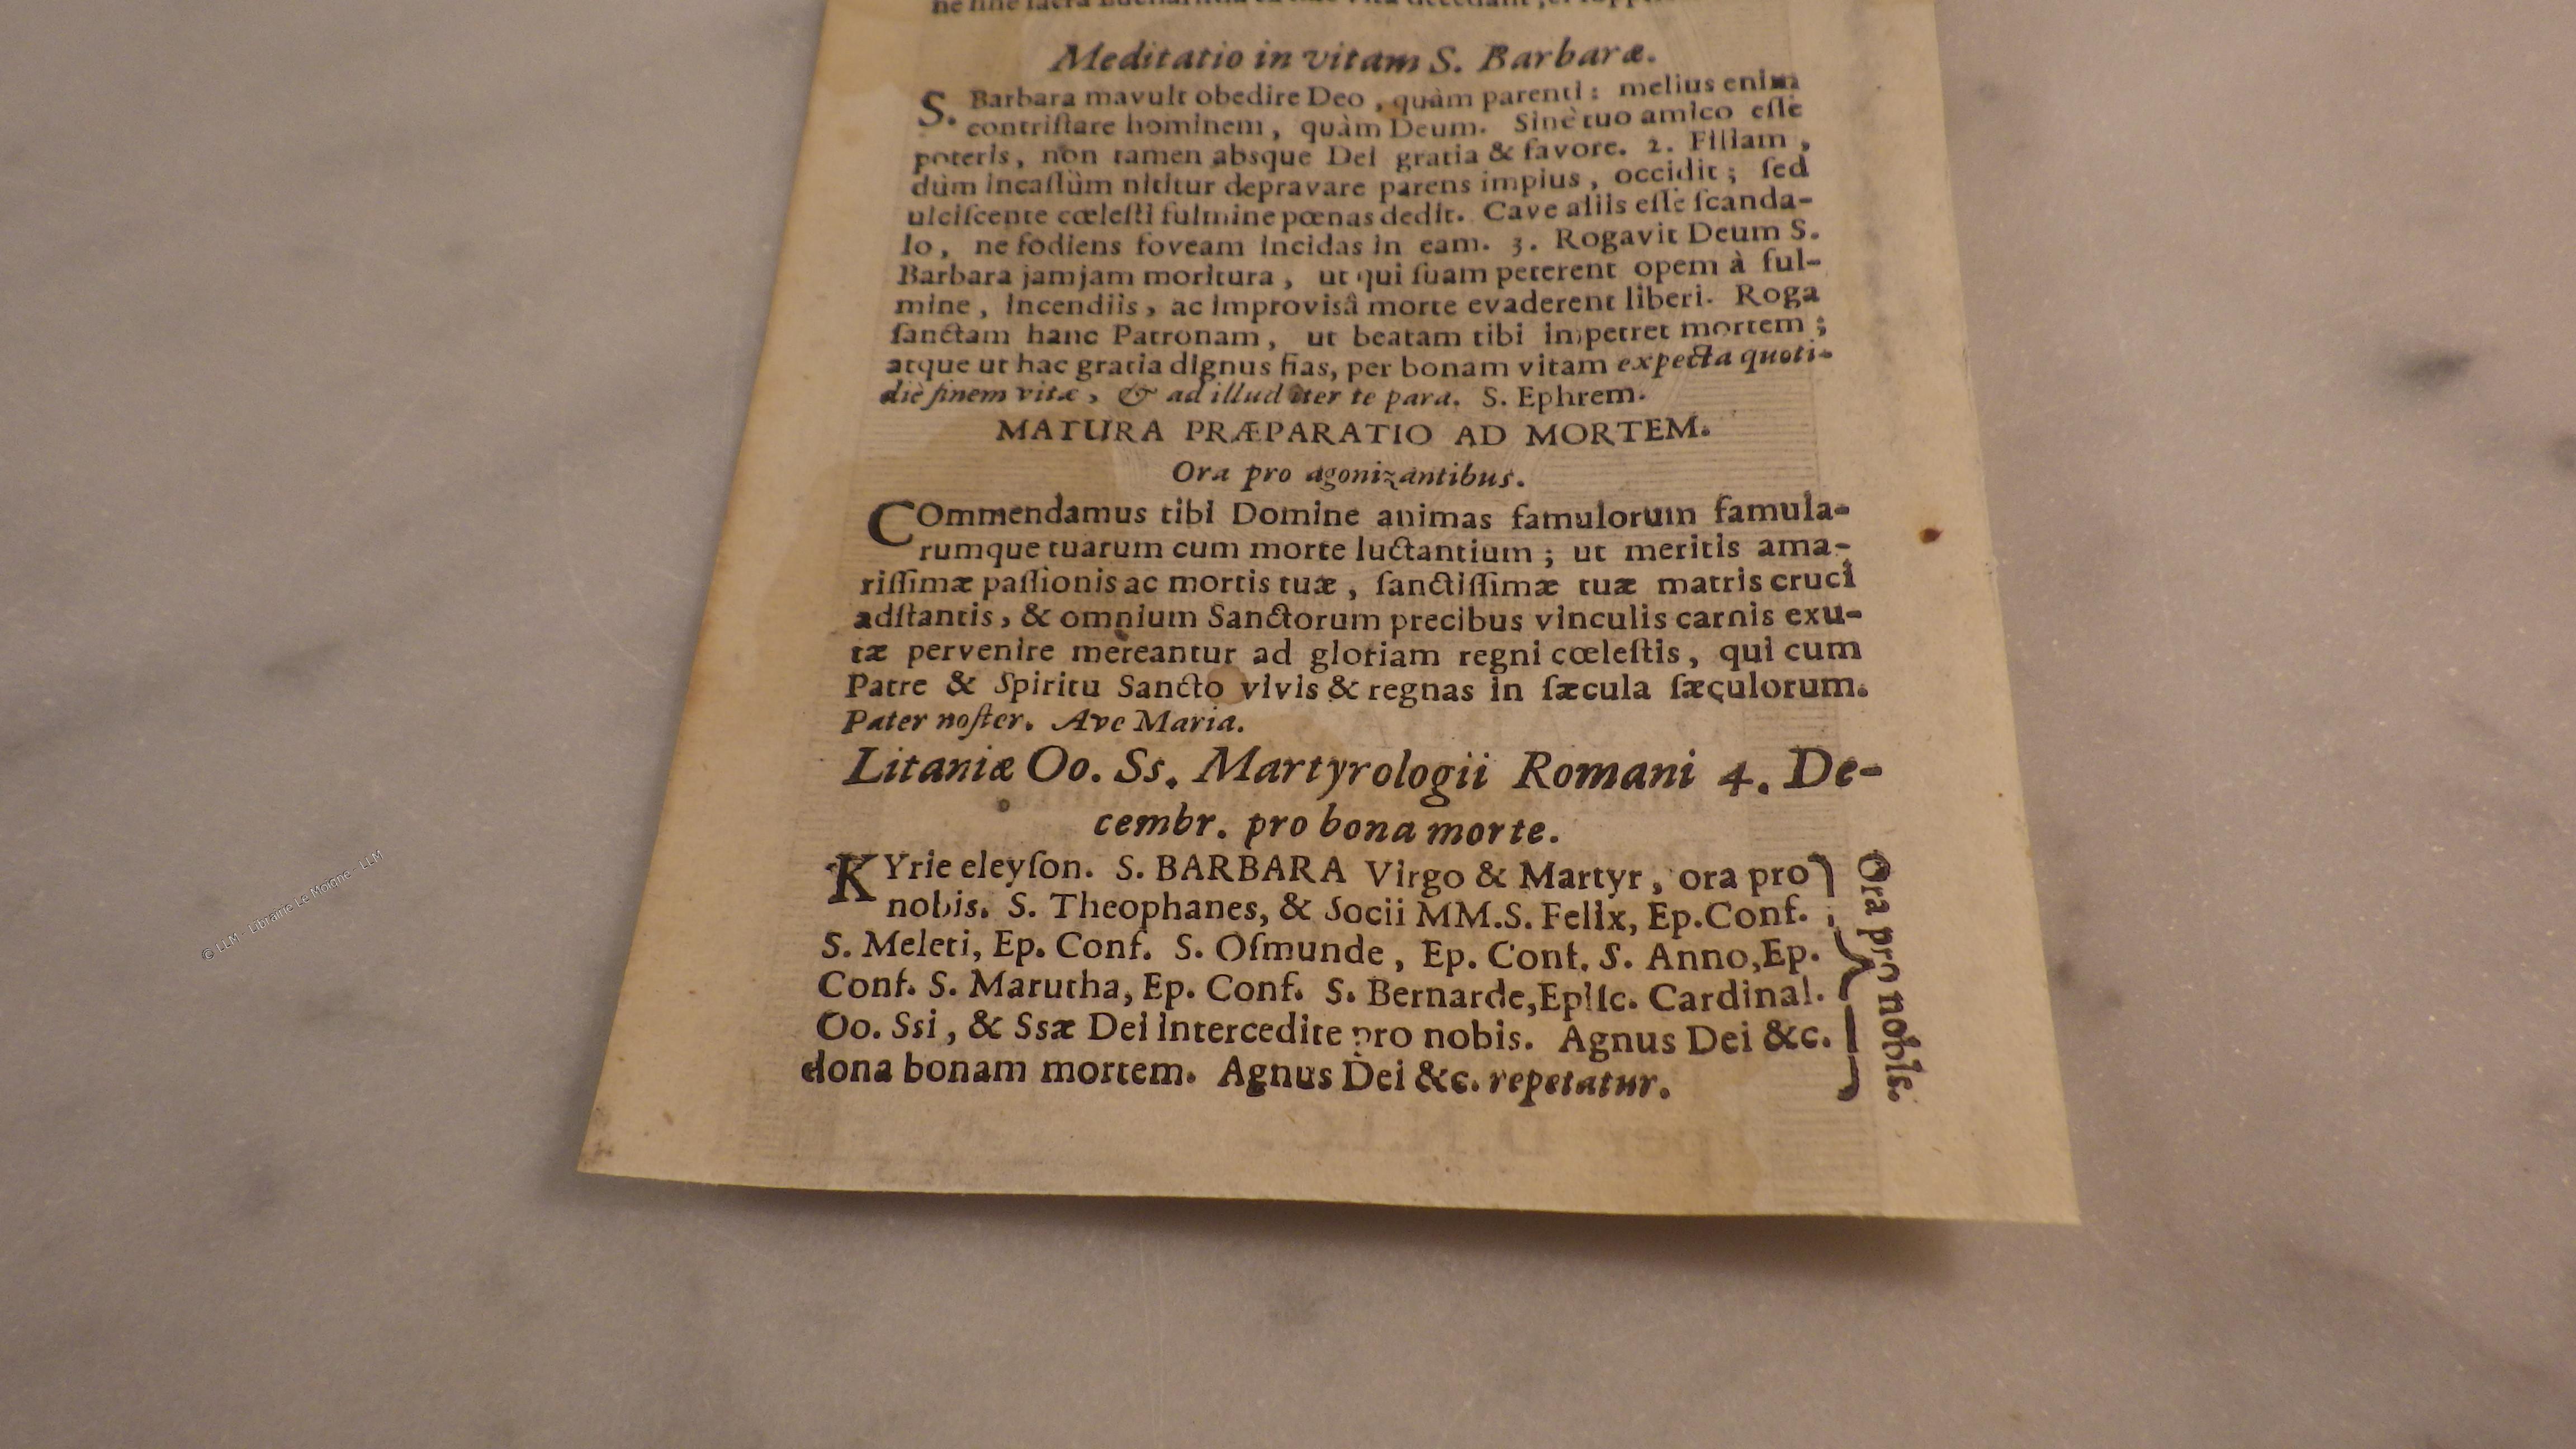 ne sine sacra
Meditatio in vitam S. Barbaræ.
S. Barbara mavult obedire Deo, quàm parenti: melius enim
contriſtare hominem, quàm Deum. Sinè tuo amico eſſe
poteris, non tamen absque Dei gratia & favore. 2. Filiam,
dùm incaſſùm nititur depravare parens impius, occidit; ſed
ulciſcente cœleſti fulmine pœnas dedit. Cave aliis eſſe ſcanda-
lo, ne fodiens foveam incidas in eam. 3. Rogavit Deum S.
Barbara jamjam moritura, ut qui ſuam peterent opem à ful-
mine, incendiis, ac improvisâ morte evaderent liberi. Roga
ſanctam hanc Patronam, ut beatam tibi impetret mortem;
atque ut hac gratia dignus fias, per bonam vitam expecta quoti-
diè finem vitæ, & ad illud iter te para. S. Ephrem.
MATURA PRÆPARATIO AD MORTEM.
Ora pro agonizantibus.
COmmendamus tibi Domine animas famulorum famula-
rumque tuarum cum morte luctantium; ut meritis ama-
riſſimæ paſſionis ac mortis tuæ, ſanctiſſimæ tuæ matris cruci
adſtantis, & omnium Sanctorum precibus vinculis carnis exu-
tæ pervenire mereantur ad gloriam regni cœleſtis, qui cum
Patre & Spiritu Sancto vivis & regnas in ſæcula ſæculorum.
Pater noſter. Ave Maria.
Litaniæ Oo. Ss. Martyrologii Romani 4. De-
cembr. pro bona morte.
KYrie eleyſon. S. BARBARA Virgo & Martyr, ora pro
nobis. S. Theophanes, & Socii MM. S. Felix, Ep. Conf.
S. Meleti, Ep. Conf. S. Oſmunde, Ep. Conf. S. Anno, Ep.
Conf. S. Marutha, Ep. Conf. S. Bernarde, Epiſc. Cardinal.
Oo. Ssi, & Ssæ Dei intercedite pro nobis. Agnus Dei &c.
dona bonam mortem. Agnus Dei &c. repetatur.
Ora pro nobis.
© LLM - Librairie Le Moigne - LLM